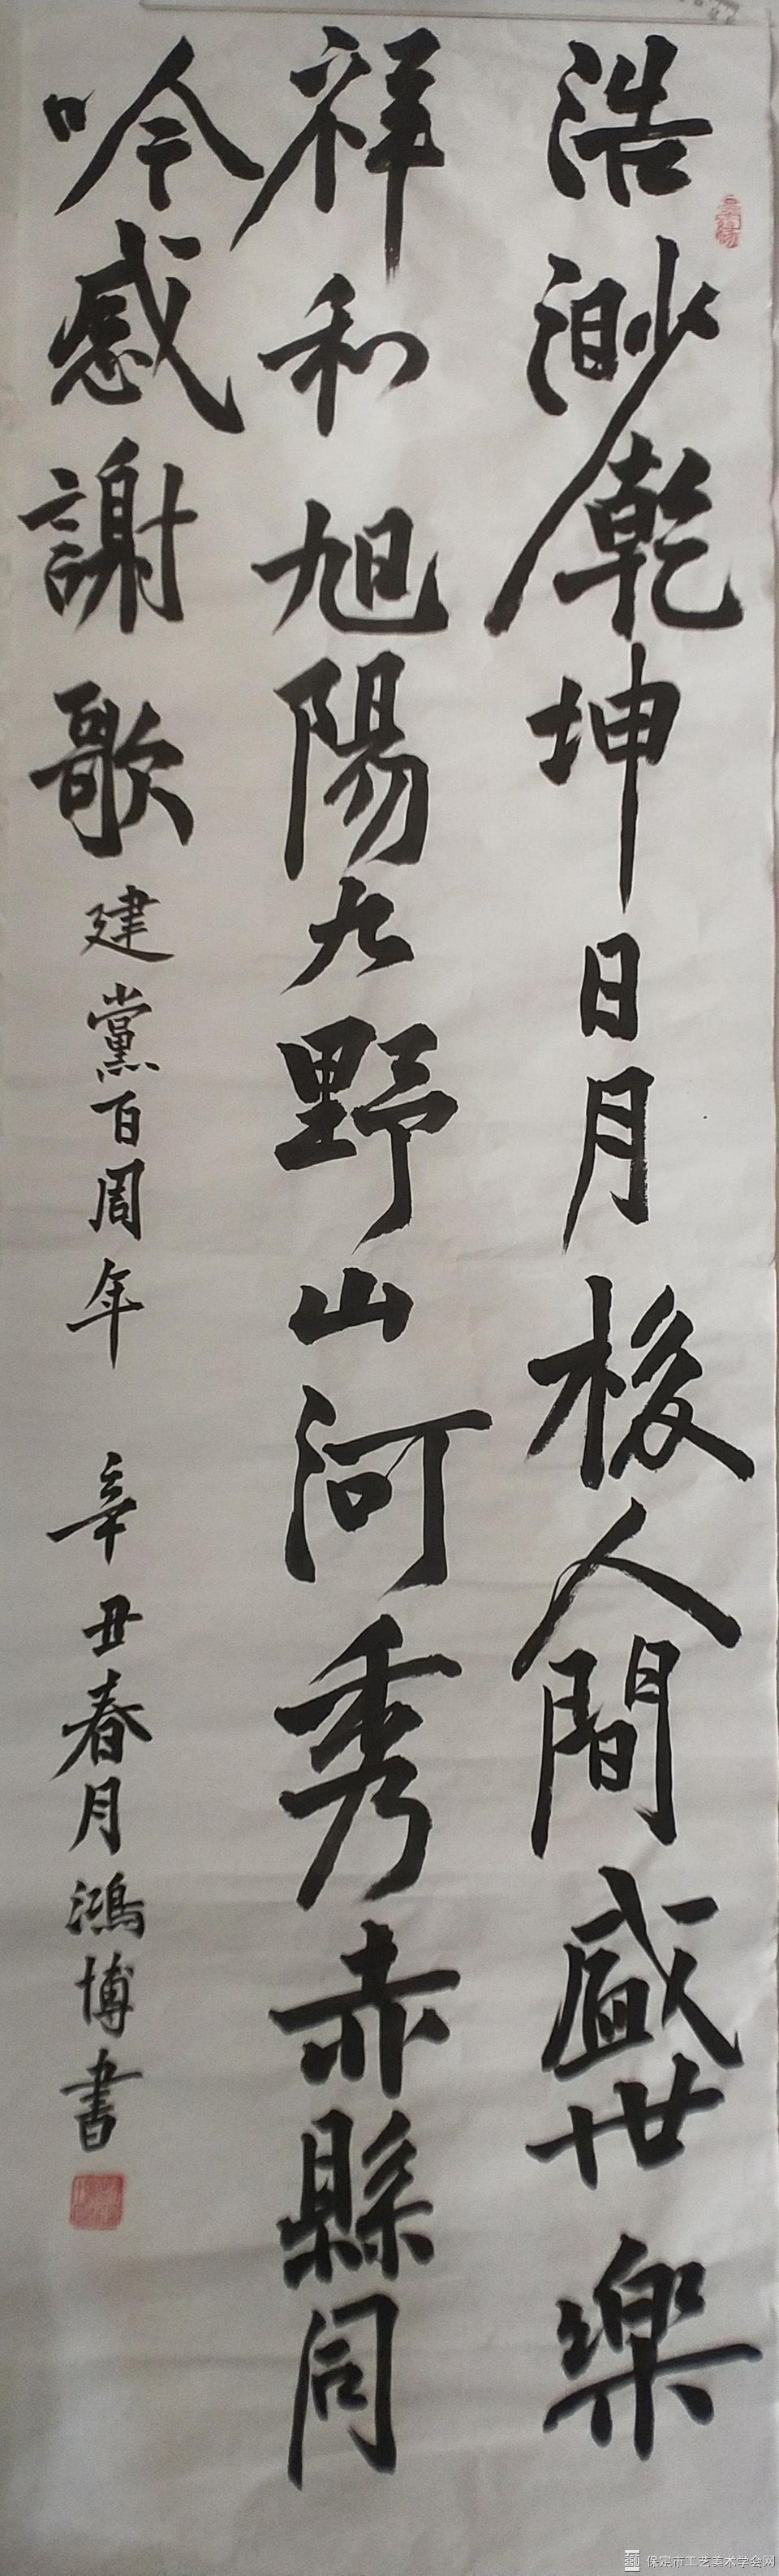 浩渺乾坤日月梭人間盛世樂
祥和旭陽九野山河秀赤縣同
吟感謝歌 建黨百周年 辛丑春月鴻博書
保定市工艺美术学会网